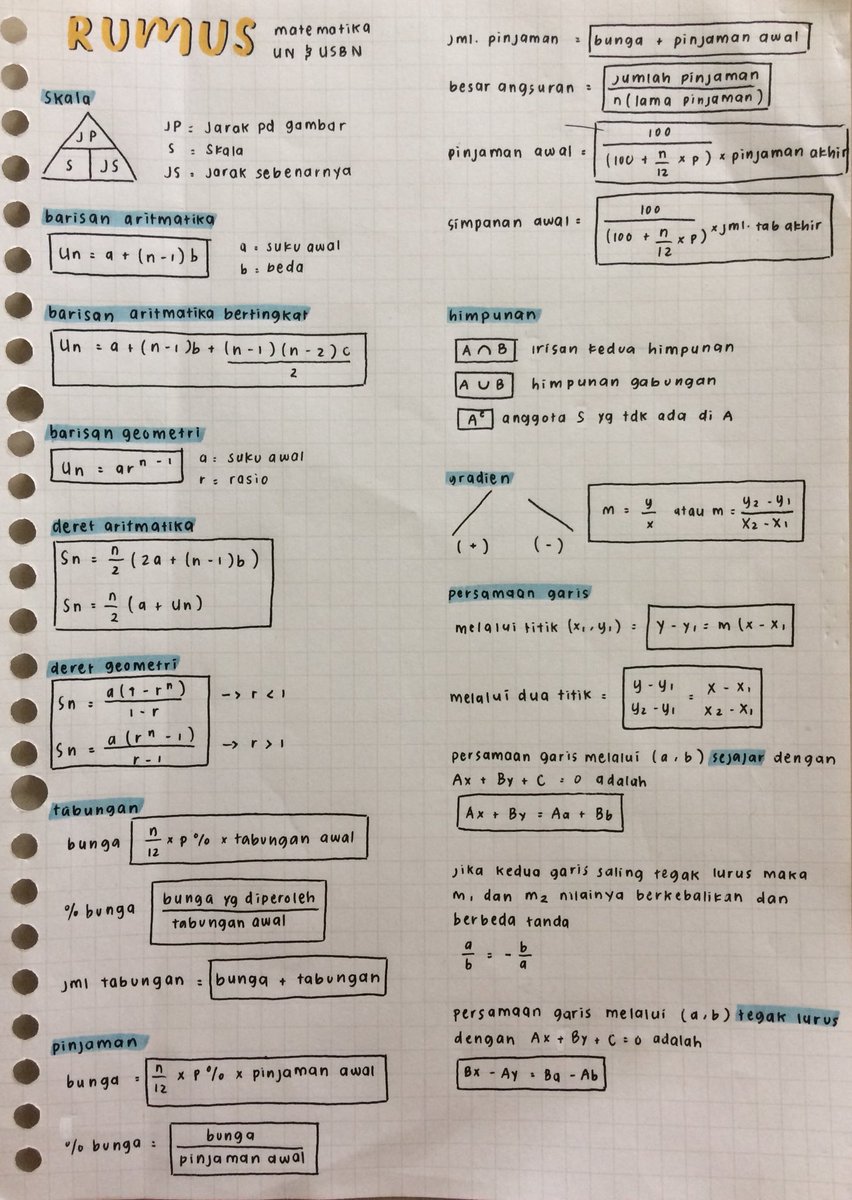 RUMUS matematika
UN & USBN
skala
JP
S JS
JP = Jarak pd gambar
S = Skala
JS = Jarak sebenarnya
barisan aritmatika
Un = a + (n-1)b
a = suku awal
b = beda
barisan aritmatika bertingkat
Un = a + (n-1)b + (n-1)(n-2)c
2
barisan geometri
Un = ar^(n-1)
a = suku awal
r = rasio
deret aritmatika
Sn = n/2 (2a + (n-1)b)
Sn = n/2 (a + Un)
deret geometri
Sn = a(1-r^n) / 1-r -> r < 1
Sn = a(r^n - 1) / r-1 -> r > 1
tabungan
bunga n/12 x p% x tabungan awal
% bunga bunga yg diperoleh / tabungan awal
jml tabungan = bunga + tabungan
pinjaman
bunga = n/12 x p% x pinjaman awal
% bunga = bunga / pinjaman awal
jml. pinjaman = bunga + pinjaman awal
besar angsuran = jumlah pinjaman / n(lama pinjaman)
pinjaman awal = 100 / (100 + n/12 x p) x pinjaman akhir
simpanan awal = 100 / (100 + n/12 x p) x jml. tab akhir
himpunan
A ∩ B irisan kedua himpunan
A ∪ B himpunan gabungan
A^c anggota S yg tdk ada di A
gradien
(+) (-)
m = y/x atau m = y2 - y1 / x2 - x1
persamaan garis
melalui titik (x1, y1) = y - y1 = m(x - x1
melalui dua titik = y - y1 / y2 - y1 = x - x1 / x2 - x1
persamaan garis melalui (a,b) sejajar dengan
Ax + By + C = 0 adalah
Ax + By = Aa + Bb
jika kedua garis saling tegak lurus maka
m1 dan m2 nilainya berkebalikan dan
berbeda tanda
a/b = - b/a
persamaan garis melalui (a,b) tegak lurus
dengan Ax + By + C = 0 adalah
Bx - Ay = Ba - Ab